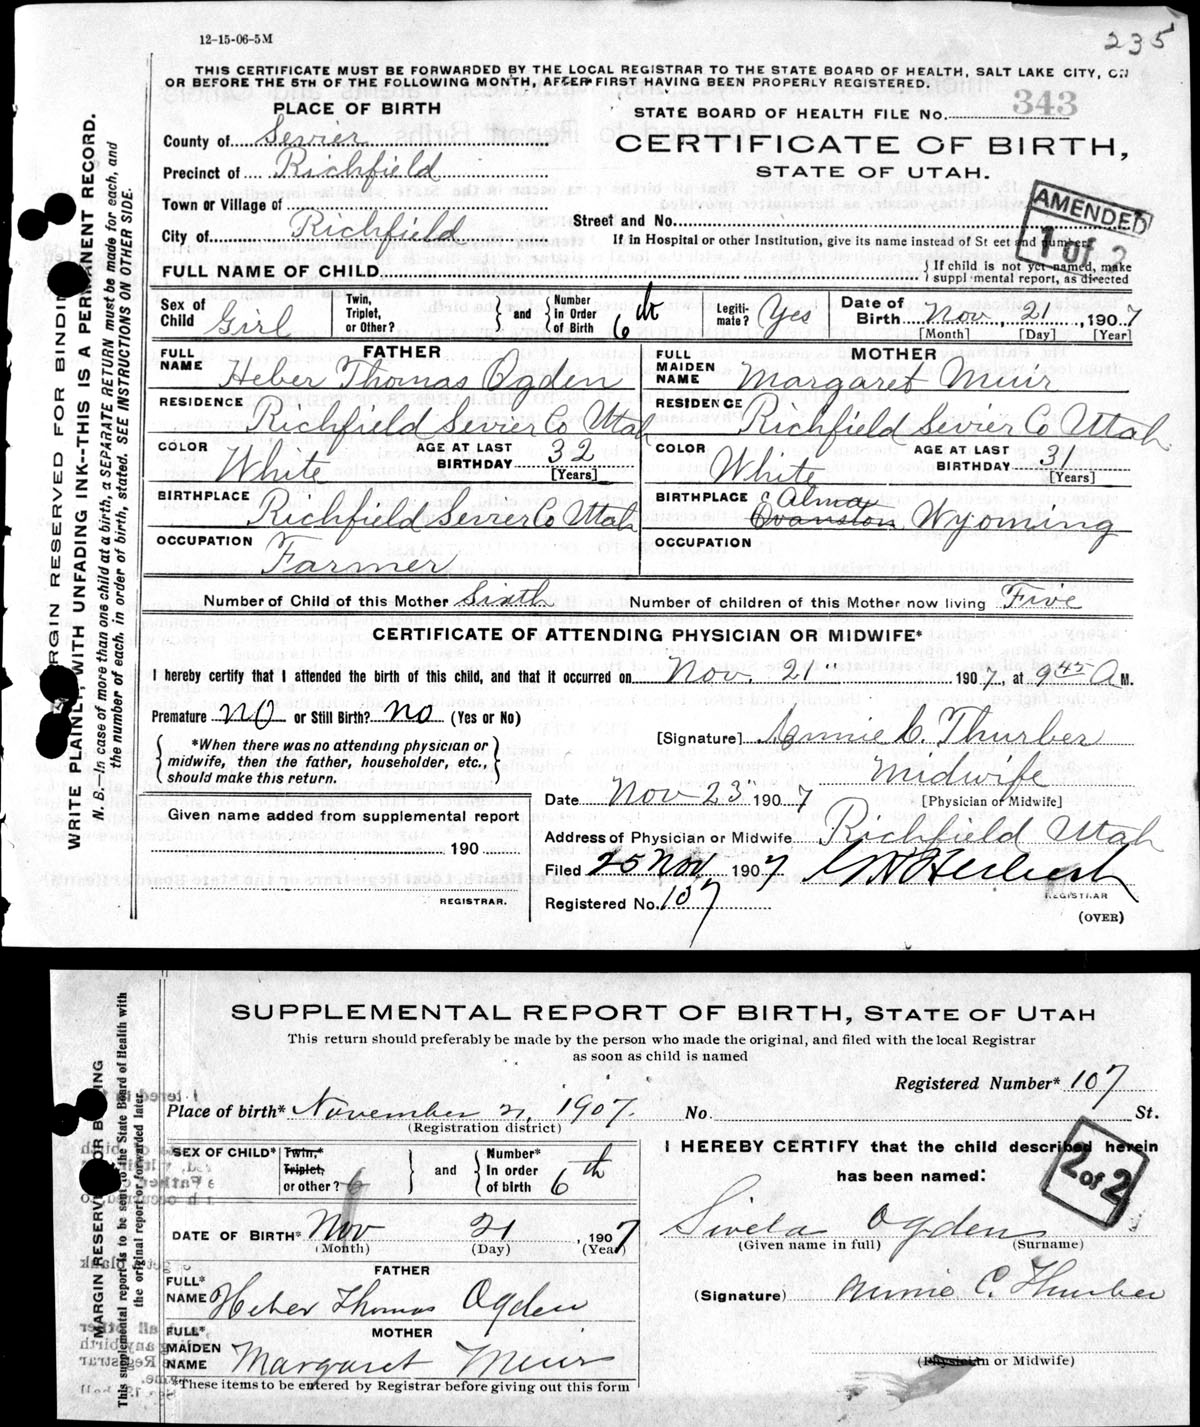 235
12-15-06-5M
THIS CERTIFICATE MUST BE FORWARDED BY THE LOCAL REGISTRAR TO THE STATE BOARD OF HEALTH, SALT LAKE CITY, ON
OR BEFORE THE 5TH OF THE FOLLOWING MONTH, AFTER FIRST HAVING BEEN PROPERLY REGISTERED.
PLACE OF BIRTH
STATE BOARD OF HEALTH FILE No. 343
County of Sevier
CERTIFICATE OF BIRTH,
Precinct of Richfield
STATE OF UTAH.
Town or Village of
AMENDED
1 of 2
City of Richfield
Street and No.
If in Hospital or other Institution, give its name instead of St eet and number.
FULL NAME OF CHILD
{ If child is not yet named, make
suppl mental report, as directed
Sex of Child Girl
Twin, Triplet, or Other? } and { Number in Order of Birth 6th
Legiti-mate? Yes
Date of Birth Nov, 21, 1907
[Month] [Day] [Year]
FATHER
FULL NAME Heber Thomas Ogden
MOTHER
FULL MAIDEN NAME Margaret Muir
RESIDENCE Richfield Sevier Co Utah
RESIDENCE Richfield Sevier Co Utah
COLOR White
AGE AT LAST BIRTHDAY 32
[Years]
COLOR White
AGE AT LAST BIRTHDAY 31
[Years]
BIRTHPLACE Richfield Sevier Co Utah
BIRTHPLACE Alma
Evanston Wyoming
OCCUPATION Farmer
OCCUPATION
Number of Child of this Mother Sixth
Number of children of this Mother now living Five
CERTIFICATE OF ATTENDING PHYSICIAN OR MIDWIFE*
I hereby certify that I attended the birth of this child, and that it occurred on Nov. 21" 1907, at 9 45 A M.
Premature NO or Still Birth? no (Yes or No)
{ *When there was no attending physician or
midwife, then the father, householder, etc.,
should make this return. }
[Signature] Annie C. Thurber
Midwife
Date Nov 23" 1907
[Physician or Midwife]
Given name added from supplemental report
190
REGISTRAR.
Address of Physician or Midwife Richfield Utah
Filed 25 Nov 1907
REGISTRAR
Registered No. 107
(OVER)
MARGIN RESERVED FOR BINDING
WRITE PLAINLY, WITH UNFADING INK--THIS IS A PERMANENT RECORD.
N. B.--In case of more than one child at a birth, a SEPARATE RETURN must be made for each, and
the number of each, in order of birth, stated. SEE INSTRUCTIONS ON OTHER SIDE.
SUPPLEMENTAL REPORT OF BIRTH, STATE OF UTAH
This return should preferably be made by the person who made the original, and filed with the local Registrar
as soon as child is named
Registered Number* 107
Place of birth* November 21, 1907. No. St.
(Registration district)
SEX OF CHILD*
Twin,*
Triplet,
or other? 6 } and { Number* In order of birth 6th
I HEREBY CERTIFY that the child described herein
has been named:
2 of 2
DATE OF BIRTH* Nov 21, 1907
(Month) (Day) (Year)
Sivela Ogden
(Given name in full) (Surname)
FATHER
FULL* NAME Heber Thomas Ogden
(Signature) Annie C. Thurber
MOTHER
FULL* MAIDEN NAME Margaret Muir
(Physician or Midwife)
*These items to be entered by Registrar before giving out this form
MARGIN RESERVED FOR BINDING
This supplemental report is to be sent to the State Board of Health with
the original report or forwarded later.